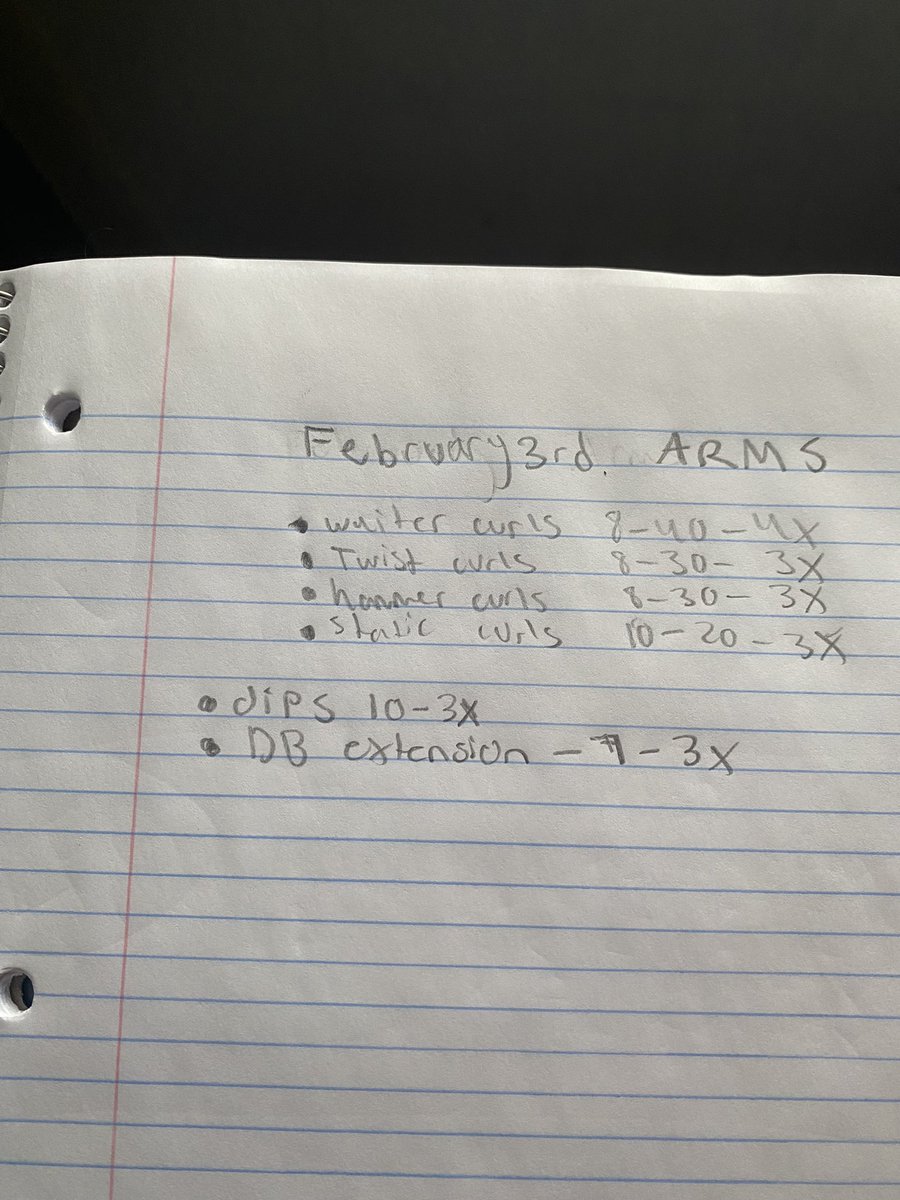 February 3rd. ARMS
• waiter curls 8-40-4X
• Twist curls 8-30- 3X
• hammer curls 8-30- 3X
• static curls 10-20-3X
• dips 10-3X
• DB extension -7-3X